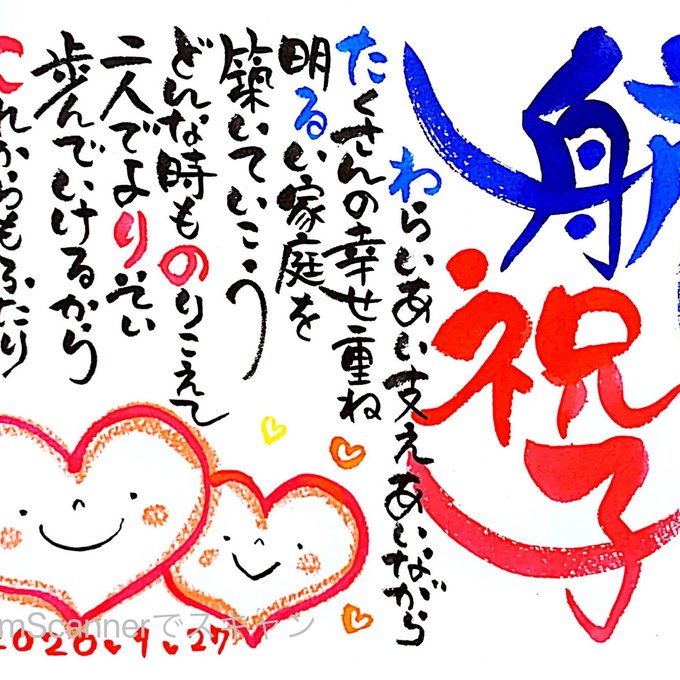 航
祝子
わらいあい支えあいながら
たくさんの幸せ重ね
明るい家庭を
築いていこう
どんな時ものりこえて
二人でよりそい
歩んでいけるから
これからもふたり
2020.4.27
mScannerでスキャン